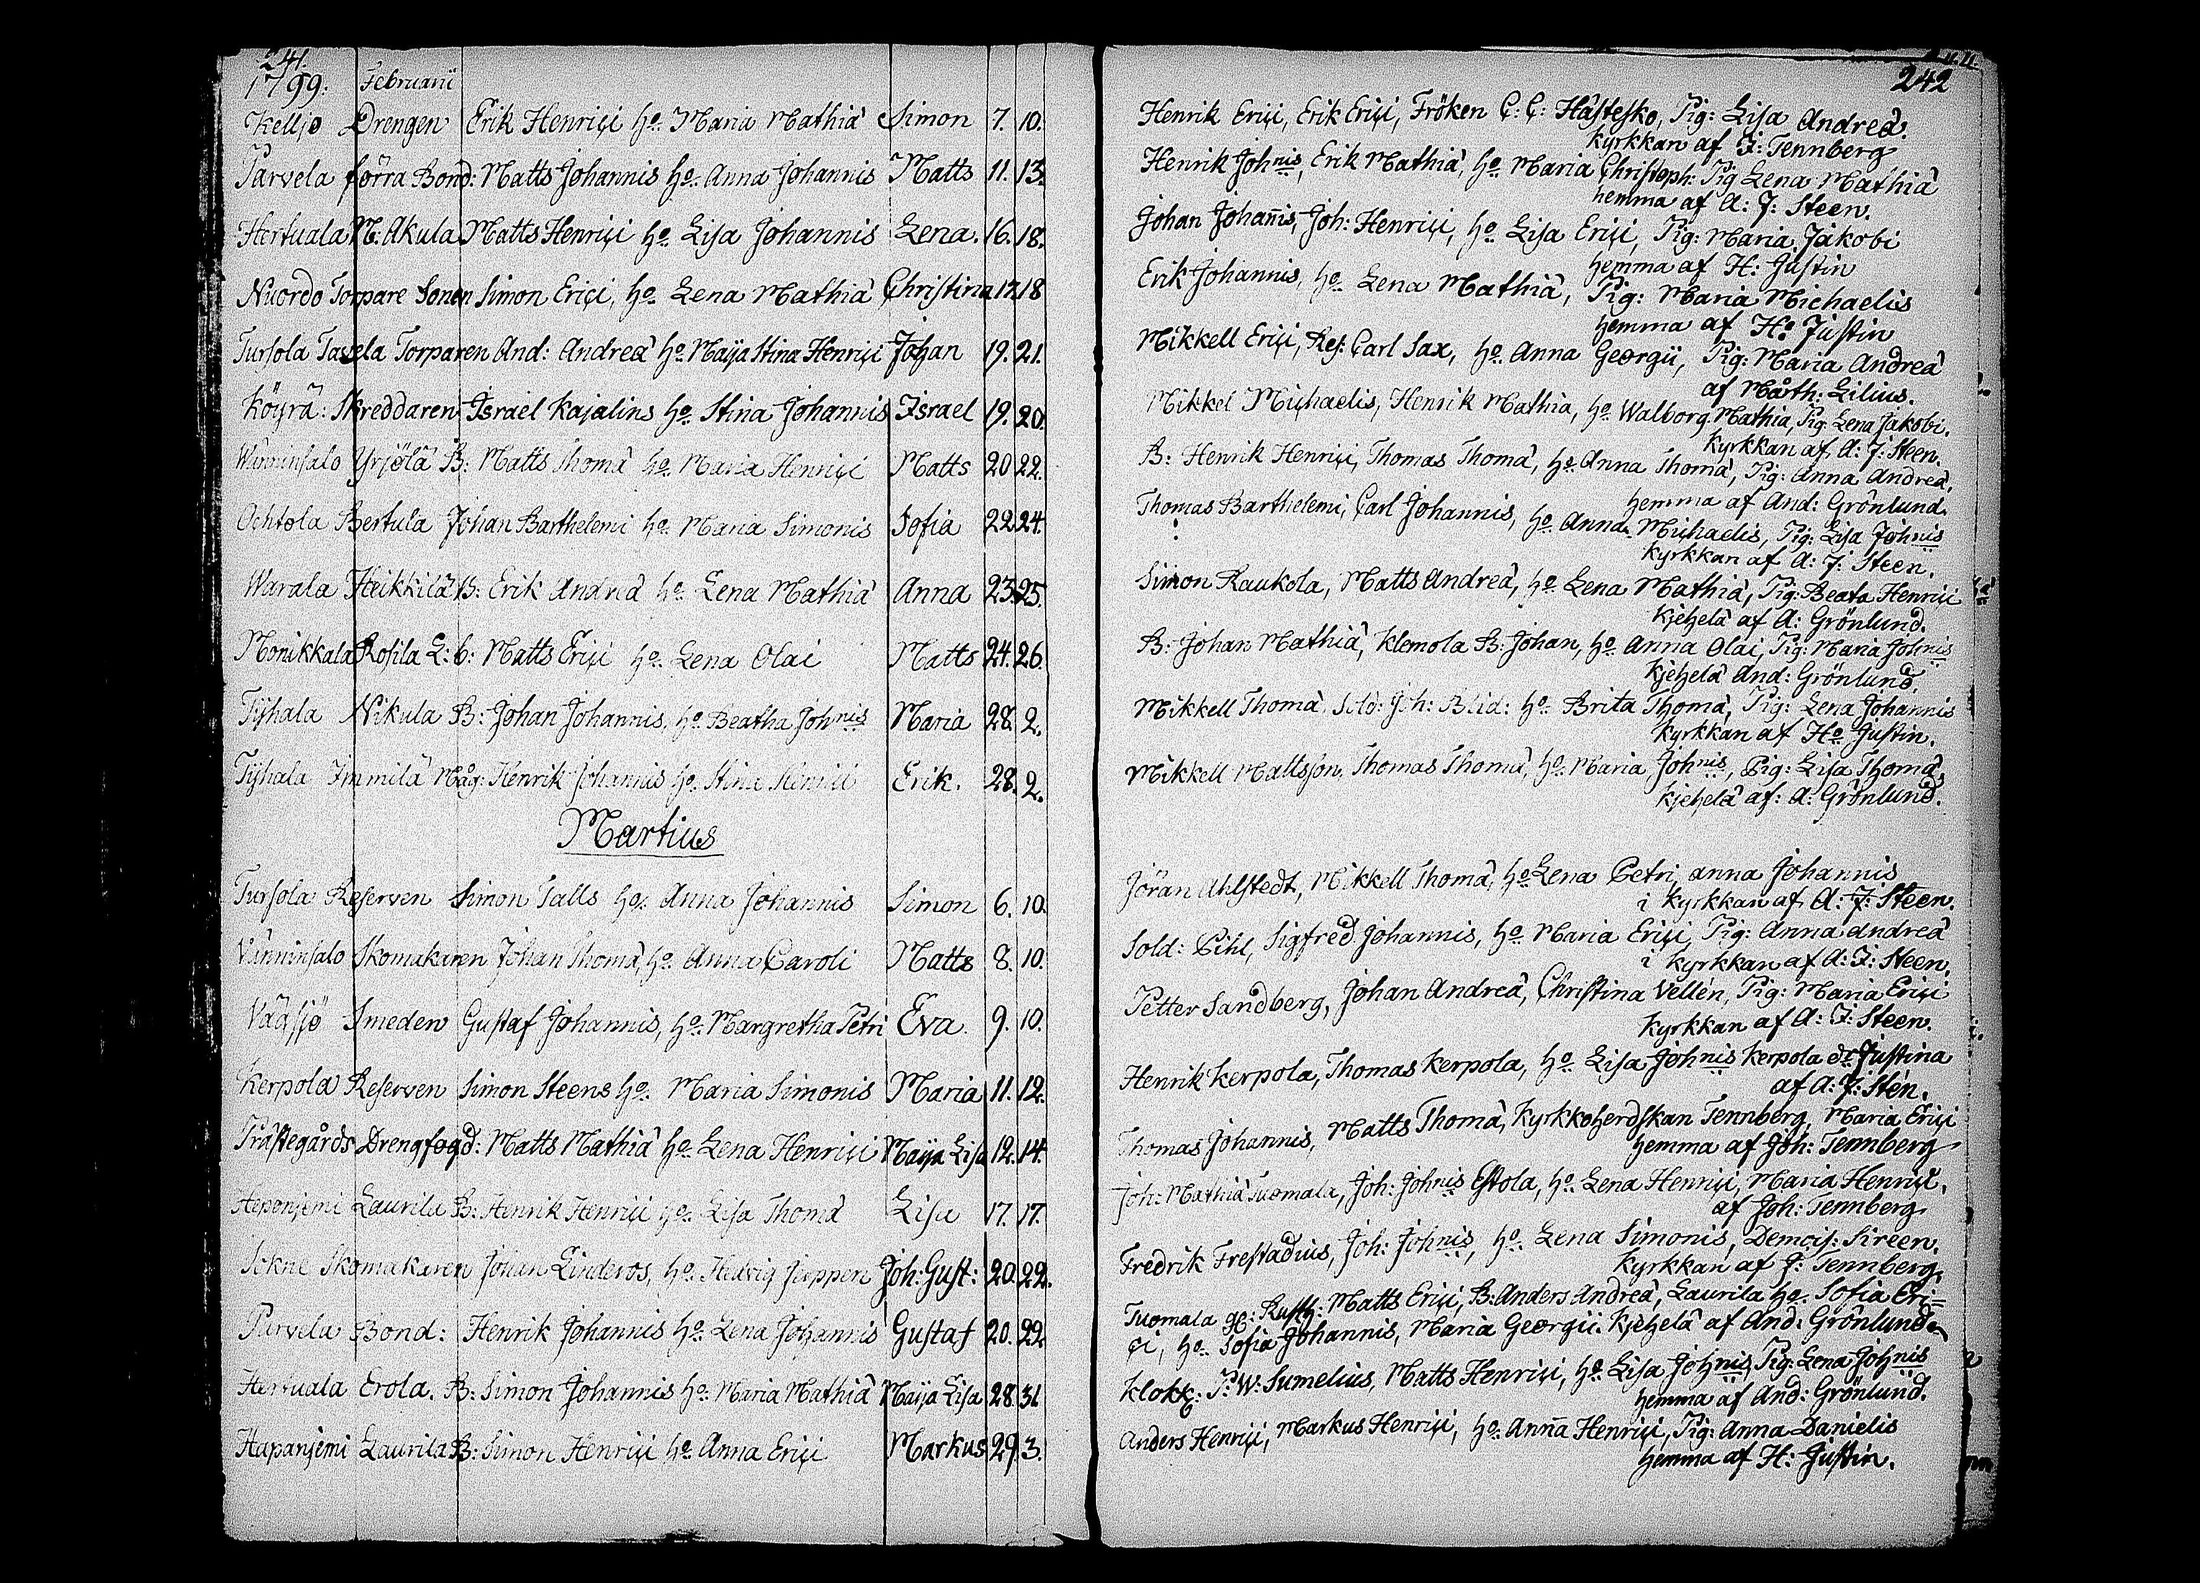 241.
1799. Februarii
Keljo Drengen Erik Henrici ho. Maria Mathiæ Simon 7. 10.
Parvela förra Bond: Matts Johannis ho. Anna Johannis Matts 11. 13.
Hertuala M: Akula Matts Henrici ho Lisa Johannis Lena. 16. 18.
Nuordo Torpare Sonen Simon Erici, ho Lena Mathiä Christina 17. 18
Tursola Tavela Torparen And: Andreä ho Maija Stina Henrici Johan 19. 21.
Köyrä: Skreddaren Israel Kajalins ho Stina Johannis Israel 19. 20.
Wänninsalo Yrjölä B: Matts Thomä ho Maria Henrici Matts 20 22.
Ochtola Bertula Johan Barthelemi ho. Maria Simonis Sofia 22. 24.
Warala Heikkilä B: Erik Andreä ho Lena Mathiä Anna 23. 25.
Monikkala Rosila L: b: Matts Erici ho Lena Olai Matts 24. 26.
Tyhala Nikula B: Johan Johannis, ho. Beatha Johnis Maria 28. 2.
Tyhala Immilä Måg: Henrik Johannis ho. Stina Erik. 28. 2.
Martius
Tursola Reserven Simon Talls ho. Anna Johannis Simon 6. 10.
Vänninsalo Skomakaren Johan Thomä, ho. Anna Caroli Matts 8. 10.
Vägsjö Smeden Gustaf Johannis, ho. Margretha Petri Eva. 9. 10.
Kerpola Reserven Simon Steens ho. Maria Simonis Maria 11. 12.
Prästegårds Drengfogd: Matts Mathiä ho. Lena Henrici Maija Lisa 12. 14.
Heponjemi Laurila B: Henrik Henrici ho. Lisa Thomä Lisa 17. 17.
Sokne Skomakaren Johan Linderos, ho. Hedvig Jeppen Joh: Gust: 20. 22.
Parvela Bond: Henrik Johannis ho Lena Johannis Gustaf 20. 29.
Hertuala Erola. B: Simon Johannis ho: Maria Mathiä Maija Lisa 28. 31
Hapanjemi Laurila B: Simon Henrici ho Anna Erici Markus 29. 3.
242
Henrik Erici, Erik Erici, Fröken C: C: Hästesko, Pig: Lisa Andreä.
kyrkkan af J: Tennberg
Henrik Johnis, Erik Mathiä, ho Maria Christoph: Pig Lena Mathiä
hemma af A: J: Steen.
Johan Johannis, Joh: Henrici, ho Lisa Erici, Pig: Maria Jakobi
hemma af H: Justin
Erik Johannis, ho Lena Mathiä, Pig: Maria Michaelis
hemma af H: Justin
Mikkell Erici, Res: Carl Sax, ho Anna Georgii, Pig: Maria Andreä
af Mårth: Lilius.
Mikkel Michaelis, Henrik Mathia, ho Walborg Mathia, Pig: Lena Jakobi.
kyrkkan af A: J: Steen.
B: Henrik Henrici, Thomas Thomä, ho Anna Thomä, Pig: Anna Andreä.
hemma af And: Grönlund.
Thomas Barthelemi, Carl Johannis, ho Anna Michaelis, Pig: Lisa Johnis
kyrkkan af A: J: Steen.
Simon Raukola, Matts Andreä, ho Lena Mathiä, Pig: Beata Henrici
kjehelä af A: Grönlund.
B: Johan Mathiä, Klemola B: Johan, ho Anna Olai, Pig: Maria Johnis
kjehelä And: Grönlund.
Mikkell Thomä. Sold: Joh: Blid: ho. Brita Thomä, Pig: Lena Johannis
kyrkkan af H: Justin.
Mikkell Mattsson. Thomas Thomä, ho. Maria Johnis, Pig: Lisa Thomä,
kjehelä af: A: Grönlund.
Jöran Ahlstedt, Mikkell Thomä, ho Lena Petri, anna Johannis
i kyrkkan af A: J: Steen.
Sold: Pihl, Sigfred Johannis, ho Maria Erici, Pig: Anna andreä
i kyrkkan af A: J: Steen.
Petter Sandberg, Johan Andreä, Christina Vellén, Pig: Maria Erici
kyrkkan af A: J: Steen.
Henrik Kerpola, Thomas Kerpola, ho Lisa Johnis Kerpola dr Justina
af A: J: Stén.
Thomas Johannis, Matts Thomä, kyrkkoherdskan Tennberg, Maria Erici
hemma af Joh: Tennberg
Joh: Mathiä Tuomala, Joh: Johnis Estola, ho Lena Henrici, Maria Henrici.
af Joh: Tennberg.
Fredrik Frestadius, Joh: Johnis, ho Lena Simonis, Demois: Sireen.
kyrkkan af J: Tennberg.
Tuomala ge: Rusth: Matts Erici, B: Anders Andreä, Laurila ho. Sofia Eri=
ci, ho. Sofia Johannis, Maria Georgii. kjehelä af And: Grönlund
Klokk: P: W: Sumelius, Matts Henrici, ho Lisa Johnis, Pig: Lena Johnis
hemma af And: Grönlund.
Anders Henrici, Markus Henrici, ho Anna Henrici, Pig: Anna Danielis
hemma af H: Justin.